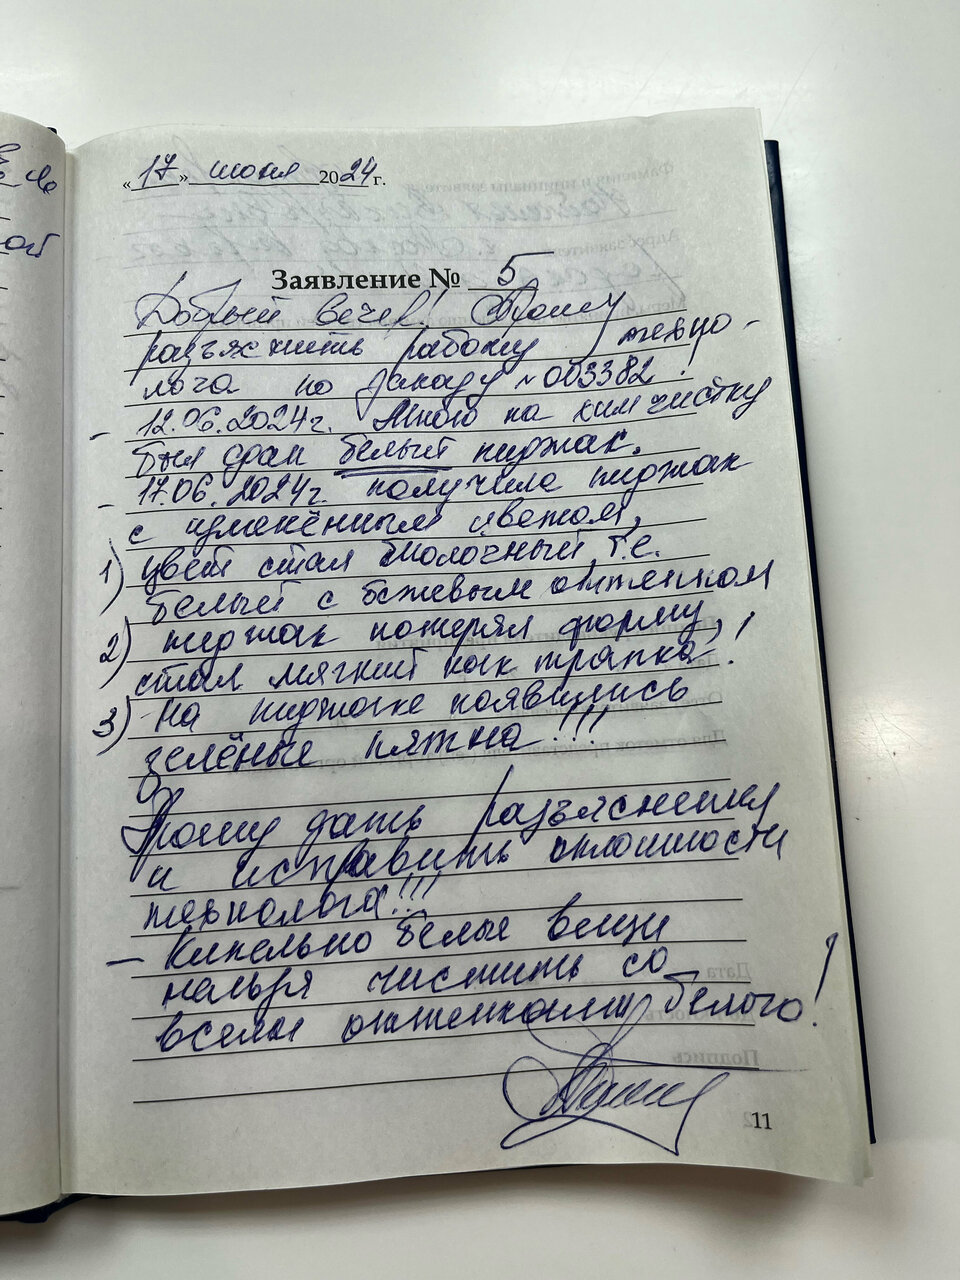 «17» июня 2024 г.
Заявление № 5
Добрый вечер! Прошу
разъяснить работу техно-
лога по заказу №003382.
- 12.06.2024г. Мною на химчистку
был сдан белый пиджак.
- 17.06.2024г. получила пиджак
с изменённым цветом,
1) цвет стал молочный т.е.
белый с бежевым оттенком
2) пиджак потерял форму,
стал мягкий как тряпка!
3) - На пиджаке появились
зелёные пятна!!!
Прошу дать разъяснения
и исправить оплошности
технолога!!!
- Кипельно белые вещи
нельзя чистить со
всеми оттенками белого!
11